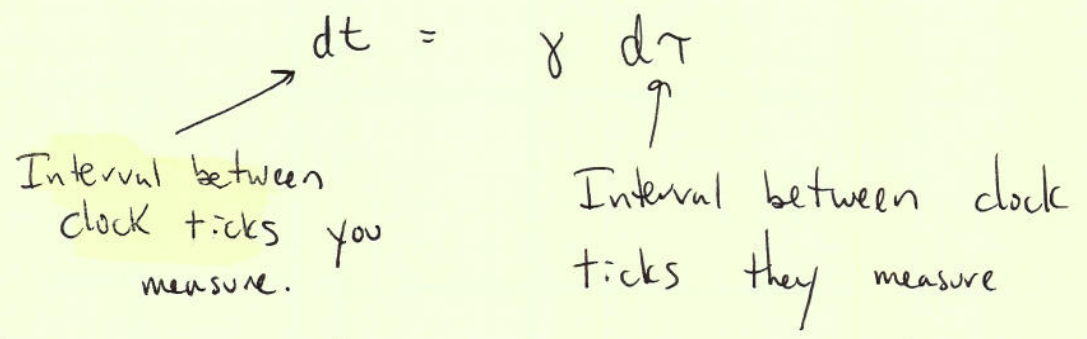 dt = γ dτ
Interval between
clock ticks you
measure.
Interval between clock
ticks they measure